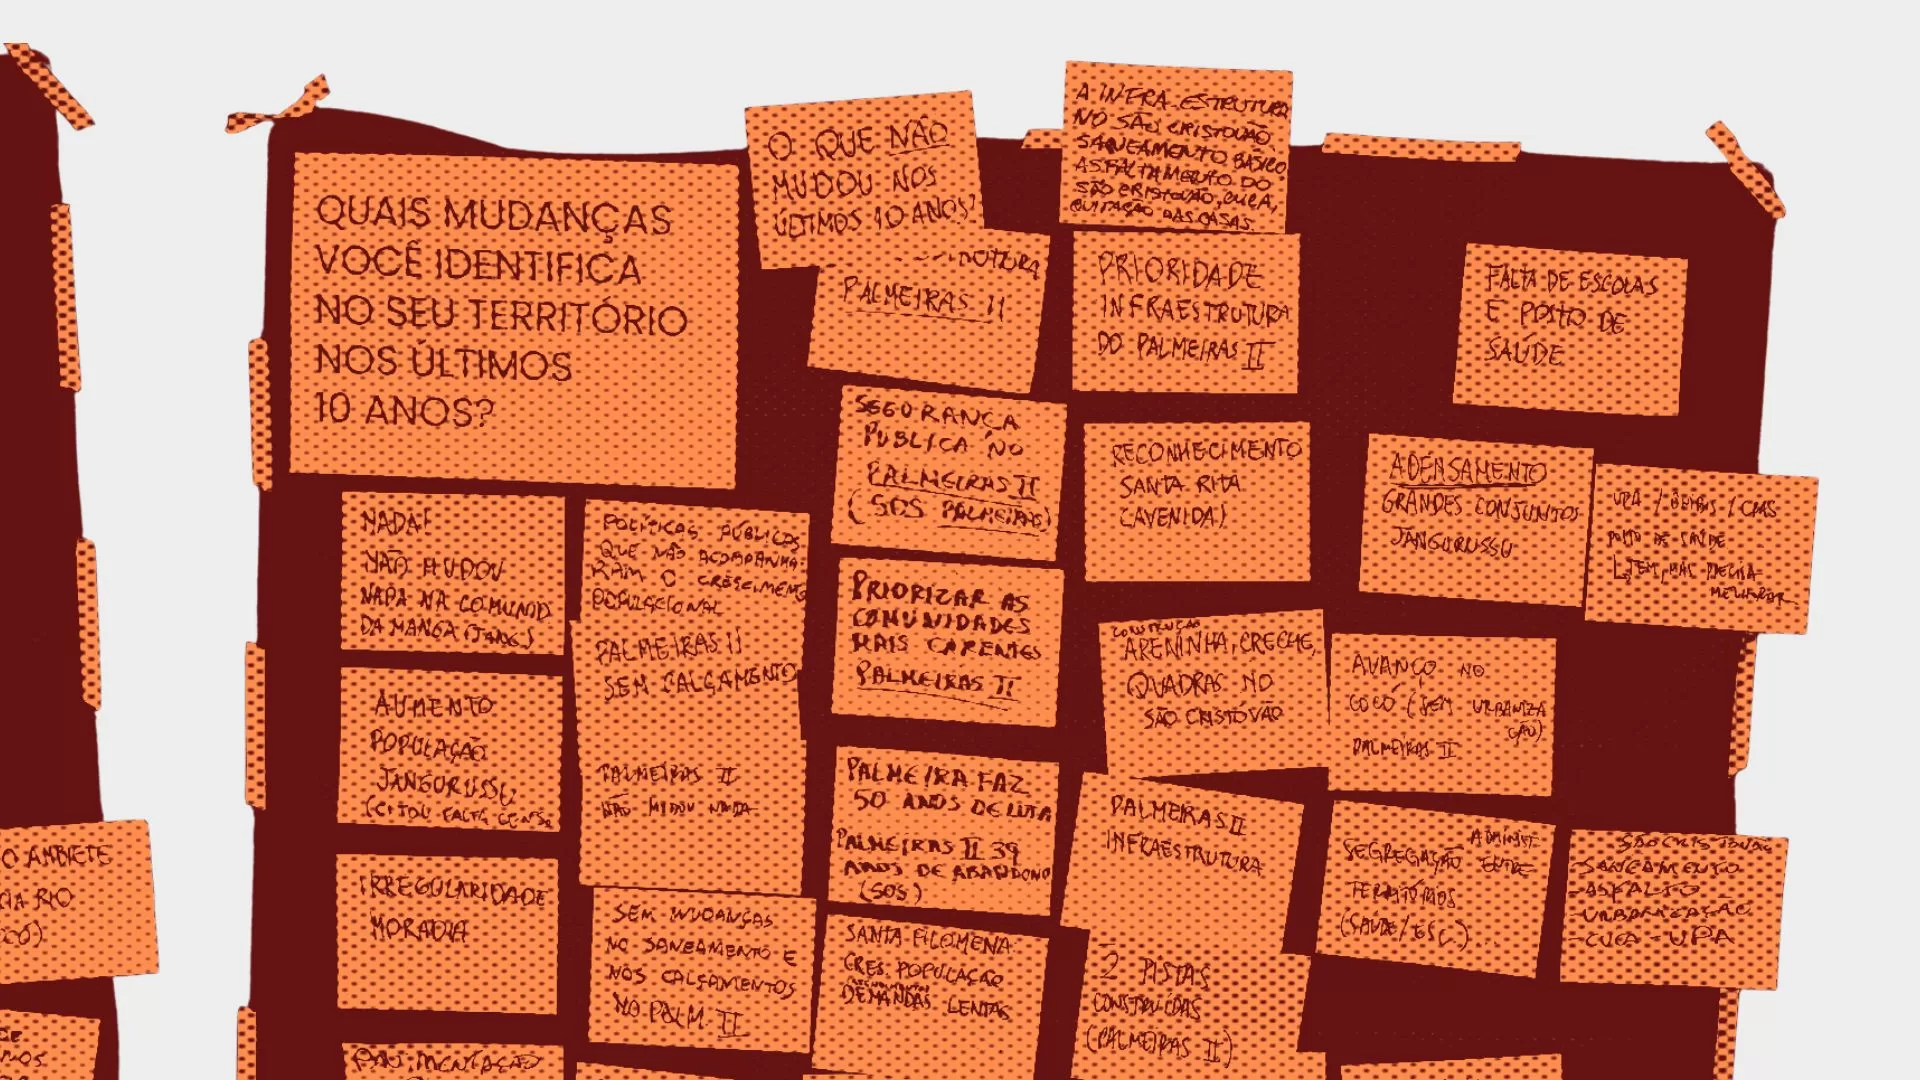 QUAIS MUDANÇAS
VOCÊ IDENTIFICA
NO SEU TERRITÓRIO
NOS ÚLTIMOS
10 ANOS?
O QUE NÃO
MUDOU NOS
ÚLTIMOS 10 ANOS?
PALMEIRAS II
A INFRA-ESTRUTURA
NO SÃO CRISTOVÃO
SANEAMENTO BÁSICO
ASFALTAMENTO DO
SÃO CRISTOVÃO, CUCA,
QUITAÇÃO DAS CASAS.
PRIORIDADE
INFRAESTRUTURA
DO PALMEIRAS II
FALTA DE ESCOLAS
E POSTO DE
SAÚDE
SEGURANÇA
PUBLICA NO
PALMEIRAS II
(SOS PALMEIRAS)
RECONHECIMENTO
SANTA RITA
(AVENIDA)
ADENSAMENTO
GRANDES CONJUNTOS
JANGURUSSU
UPA / / CRAS
POSTO DE SAÚDE
TEM, MAS PRECISA
MELHORAR
NADA!
NÃO MUDOU
NADA NA COMUNID.
DA MANGA (JANG)
POLÍTICAS PÚBLICAS
QUE NÃO ACOMPANHA-
RAM O CRESCIMENTO
POPULACIONAL
PALMEIRAS II
SEM CALÇAMENTO
PALMEIRAS II
NÃO MUDOU NADA
PRIORIZAR AS
COMUNIDADES
MAIS CARENTES
PALMEIRAS II
CONSTRUÇÃO
ARENINHA, CRECHE,
QUADRAS NO
SÃO CRISTÓVÃO
AVANÇO NO
COCÓ (SEM URBANIZA
ÇÃO)
PALMEIRAS II
AUMENTO
POPULAÇÃO
JANGURUSSU
(CITOU FALTA CENSO
PALMEIRA FAZ
50 ANOS DE LUTA
PALMEIRAS II 39
ANOS DE ABANDONO
(SOS)
PALMEIRAS II
INFRAESTRUTURA
ADMINIST.
SEGREGAÇÃO ENTRE
TERRITÓRIOS
(SAÚDE/ESC.)...
SÃO CRISTOVÃO
-SANEAMENTO
-ASFALTO
-URBANIZAÇÃO
-CUCA -UPA
IRREGULARIDADE
MORADIA
SEM MUDANÇAS
NO SANEAMENTO E
NOS CALÇAMENTOS
NO PALM. II
SANTA FILOMENA:
CRES. POPULAÇÃO
DEMANDAS LENTAS
2 PISTAS
CONSTRUÍDAS
(PALMEIRAS II)
PAVIMENTAÇÃO
O AMBIETE
RIO